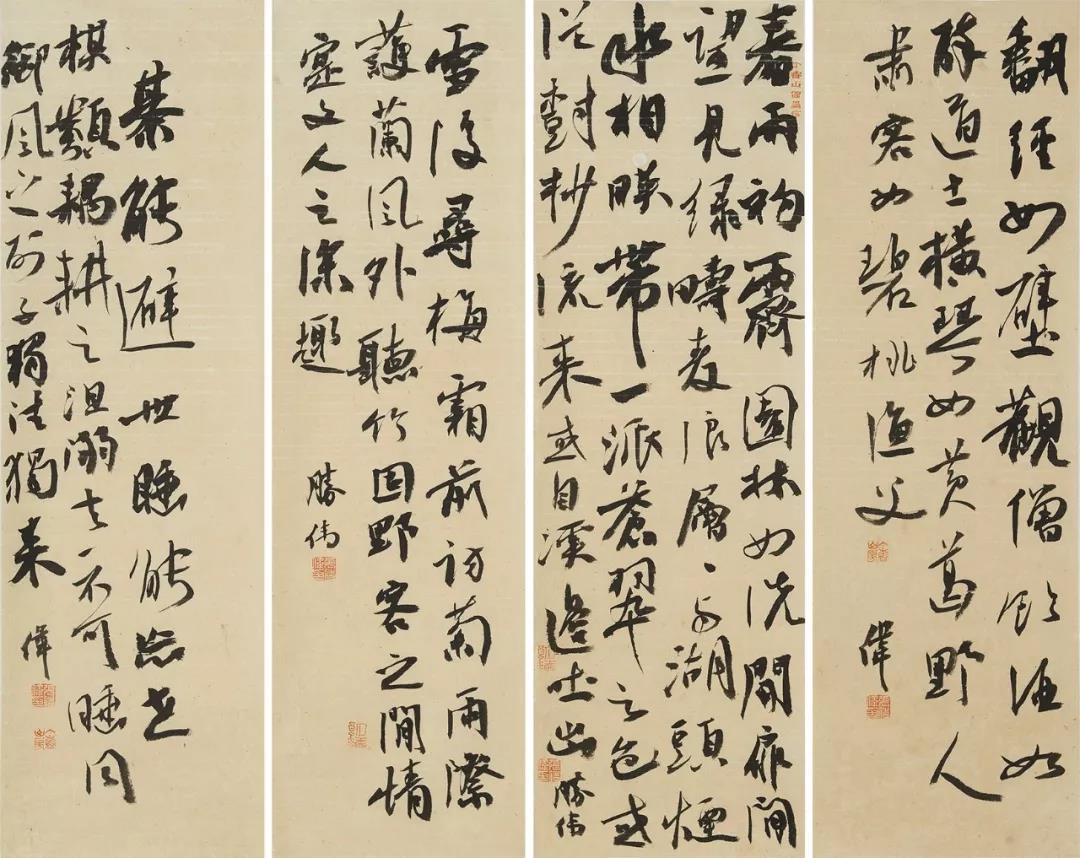 翻經如壁觀僧飲酒如
醉道士橫琴如黃葛野人
肅客如碧桃漁父
偉
春雨初霽園林如洗開扉閒
望見綠疇麥浪層〻與湖頭煙
水相映帶一派蒼翠之色或
從樹杪流來或自溪邊吐出
勝偉
雪後尋梅霜前訪菊雨際
護蘭風外聽竹固野客之閒情
寔文人之深趣
勝偉
棊能避世睡能忘世
棋類耦耕之沮溺去一不可睡同
御風之列子獨往獨來
偉